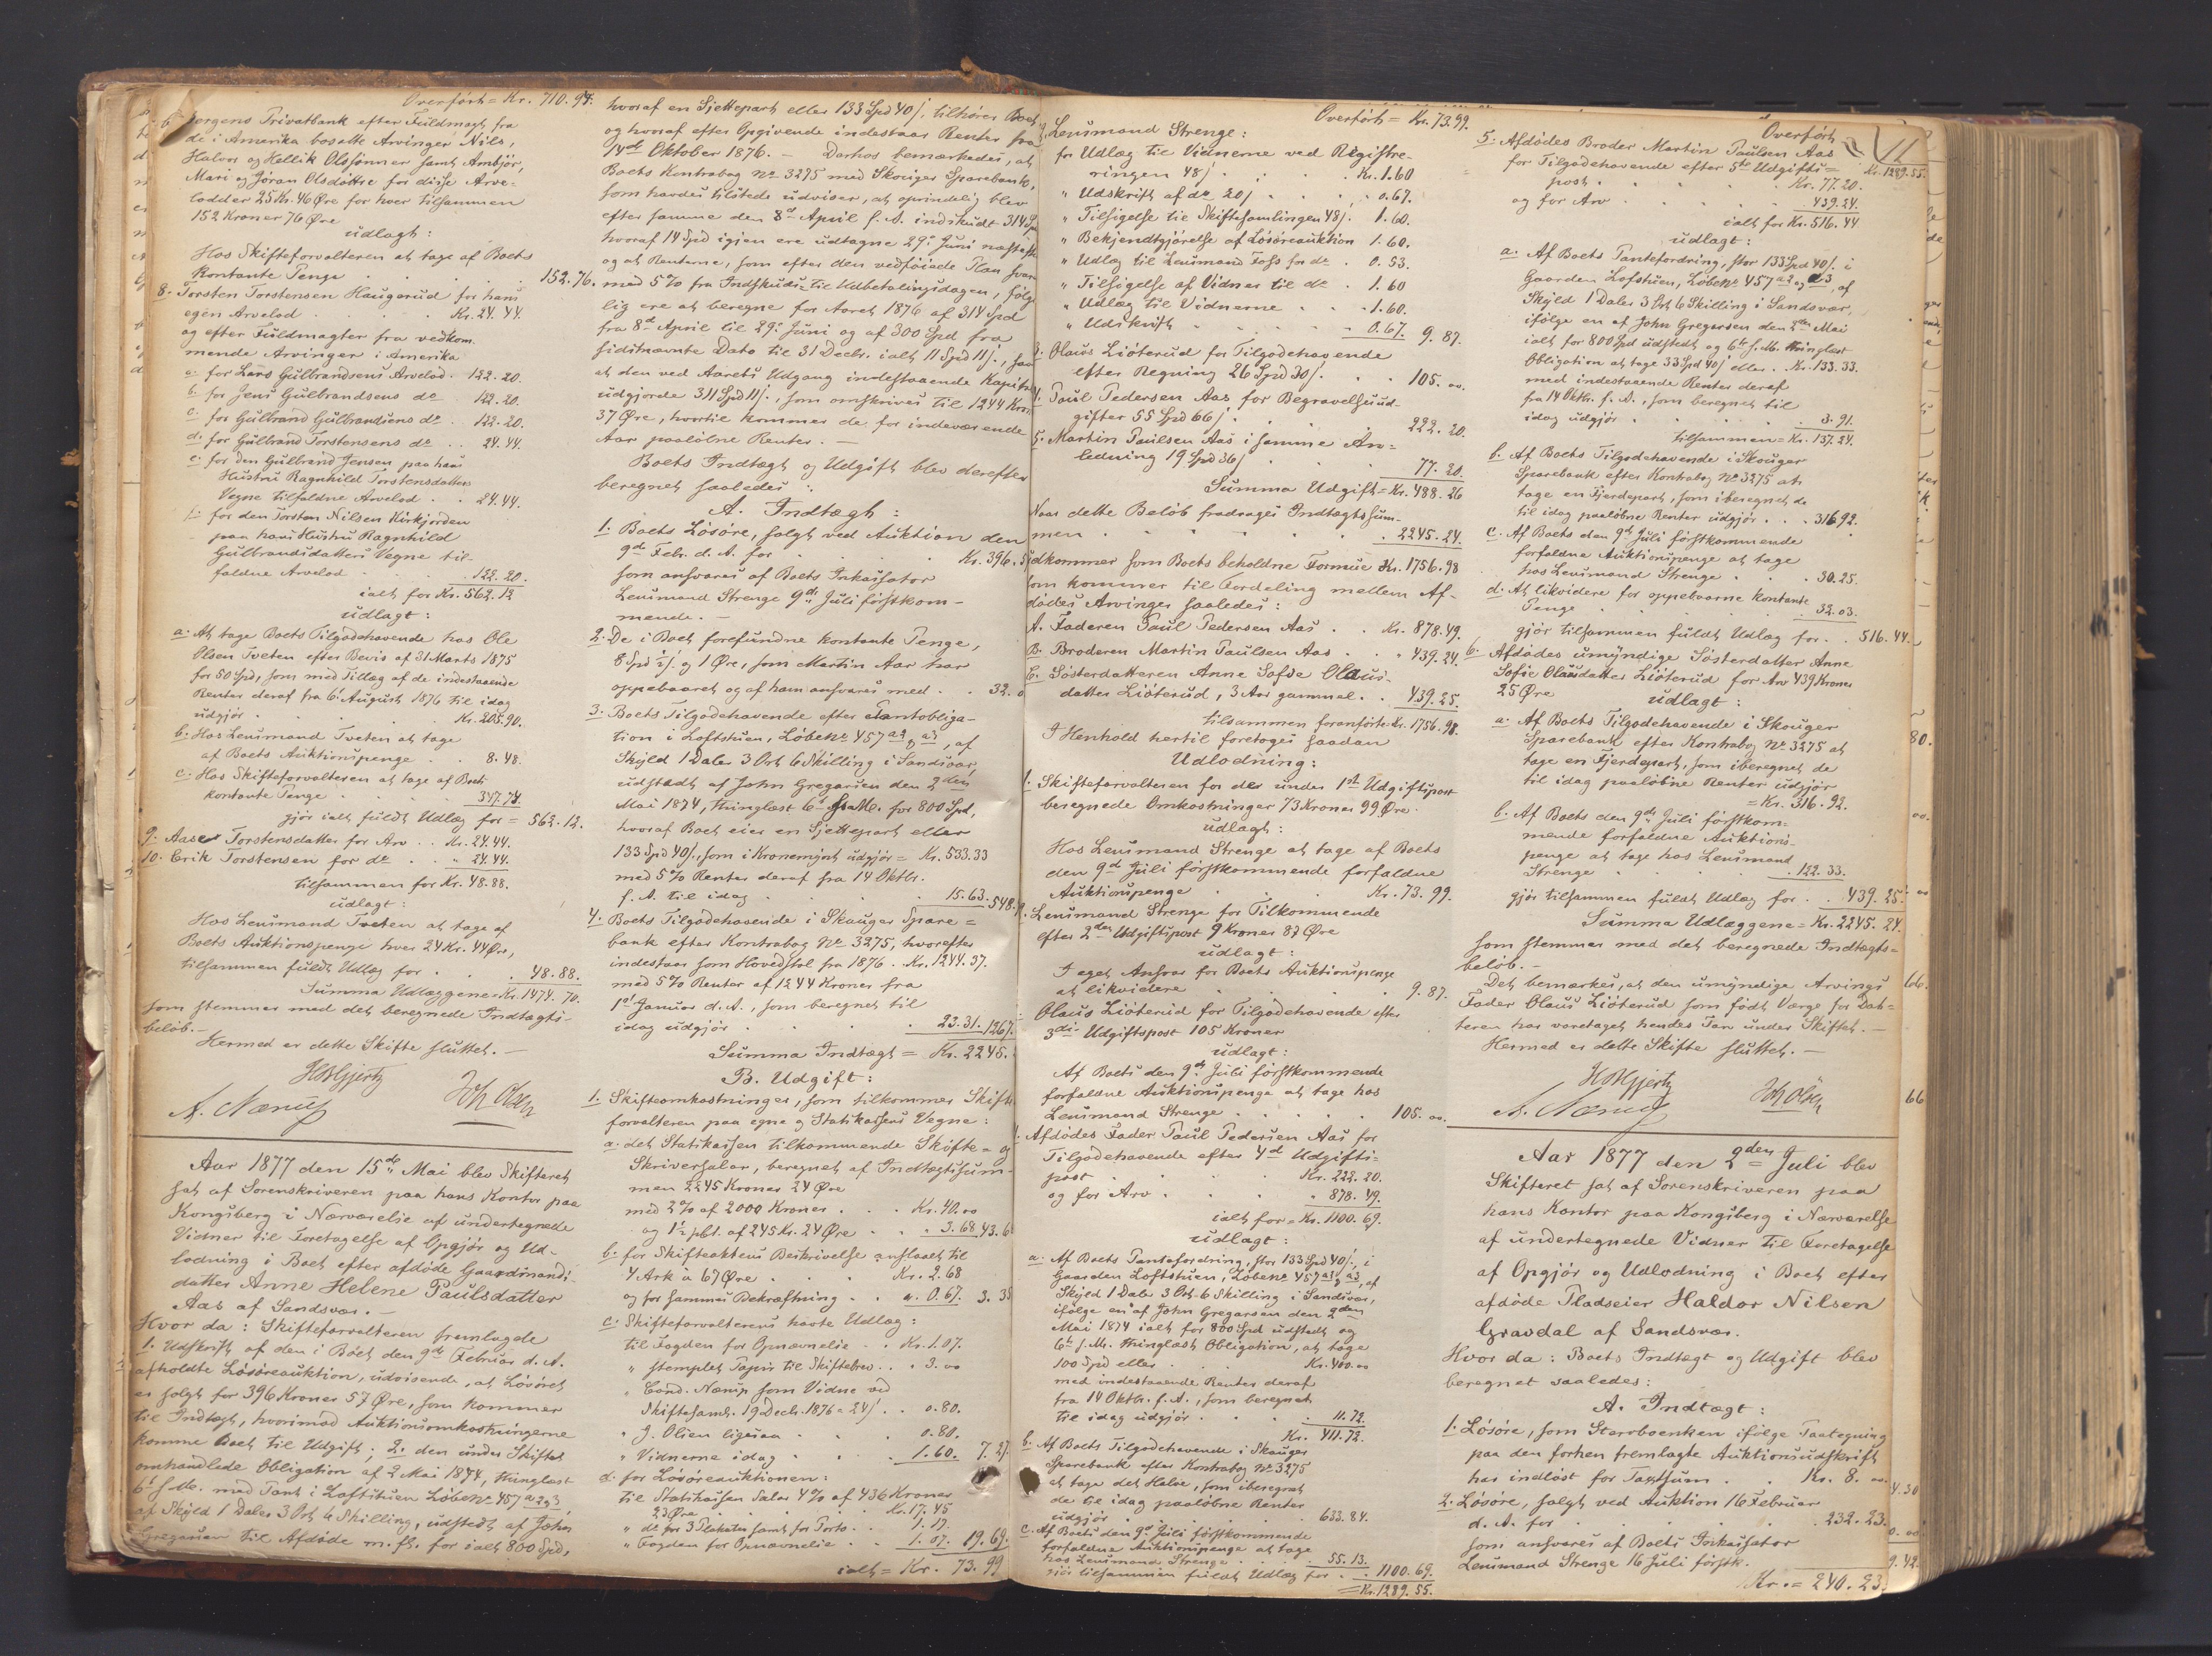 Overført = Kr. 710.94.
Privatbank efter Fuldmagt fra
de i Amerika bosatte Arvinger Nils,
Halvor og Hellik Olssønner samt Ambjør,
Mari og Jøran Olsdøttre for disse Arve-
lodder 25 Kr. 46 Øre for hver tilsammen
152 Kroner 76 Øre
udlagt:
Hos Skifteforvalteren at tage af Boets
kontante Penge . . . 152.76.
8. Torsten Torstensen Haugerud for hans
egen Arvelod . . . Kr. 24.44.
og efter Fuldmagter fra vedkom-
mende Arvinger i Amerika
a. for Lars Gulbrandsens Arvelod . 122.20.
b. for Jens Gulbrandsens do . 122.20.
c. for Gulbrand Gulbrandsens do . 122.20.
d. for Gulbrand Torstensens do . . 24.44.
e. for den Gulbrand Jensen paa hans
Hustru Ragnhild Torstensdatters
Vegne tilfaldne Arvelod . . 24.44.
f. for den Torsten Nilsen Kirkjorden
paa hans Hustru Ragnhild
Gulbrandsdatters Vegne til-
faldne Arvelod . . . 122.20.
ialt for Kr. 562.12
udlagt:
a. At tage Boets Tilgodehavende hos Ole
Olsen Tveten efter Bevis af 31 Marts 1875
for 50 Spd, som med Tillæg af de indestaaende
Renter deraf fra 6t August 1876 til idag
udgjør . . . Kr. 205.90.
b. Hos Lensmand Tveten at tage
af Boets Auktionspenge . . 8.48.
c. Hos Skifteforvalteren at tage af Boets
kontante Penge . . . 347.74.
gjør ialt fuldt Udlæg for = 562.12.
9. Aase Torstensdatter for Arv . . Kr. 24.44.
10. Erik Torstensen for do . . " 24.44.
tilsammen for Kr. 48.88.
udlagt:
Hos Lensmand Tveten at tage af
Boets Auktionspenge hver 24 Kr. 44 Øre,
tilsammen fuldt Udlæg for . . . 48.88.
Summa Udlæggene = Kr. 1474.70.
som stemmer med det beregnede Indtægts-
beløb. —
Hermed er dette Skifte sluttet. —
Hbgjertz
A. Nærup Joh Olsen
Aar 1877 den 15de Mai blev Skifteret
sat af Sorenskriveren paa hans Kontor paa
Kongsberg i Nærværelse af undertegnede
Vidner til Foretagelse af Opgjør og Ud-
lodning i Boet efter afdøde Gaardmands-
datter Anne Helene Paulsdatter
Aas af Sandsvær. —
Hvor da: Skifteforvalteren fremlagde
1. Udskrift af den i Boet den 9de Februar d. A.
afholdte Løsøreauktion, udvisende, at Løsøret
er solgt for 396 Kroner 57 Øre, som kommer
til Indtægt, hvorimod Auktionsomkostningerne
komme Boet til Udgift; 2. den under Skiftet
omhandlede Obligation af 2 Mai 1874, thinglæst
6t s. M. med Pant i Loftstuen Løbeno 457 a2 og 3
af Skyld 1 Daler 3 Ort 6 Skilling, udstedt af John
Gregarsen til Afdøde m. fl. for ialt 800 Spd,
hvoraf en Sjettepart eller 133 Spd 40 s, tilhører Boet
og hvoraf efter Opgivende indestaar Renter fra
14de Oktober 1876. — Derhos bemærkedes, at
Boets Kontrabog No 3275 med Skouger Sparebank,
som havdes tilstede udviser, at oprindelig blev
efter samme den 8de April f. A. indskudt 314 Spd
hvoraf 14 Spd igjen ere udtagne 29de Juni næstefter
og at Renterne, som efter den vedføiede Plan svares
med 5 % fra Indskuds- til Udbetalingsdagen, følge-
lig ere at beregne for Aaret 1876 af 314 Spd
fra 8de April til 29de Juni og af 300 Spd fra
sidstnævnte Dato til 31 Decbr. ialt 11 Spd 11 s., saa
at den ved Aarets Udgang indestaaende Kapital
udgjorde 311 Spd 11 s., som omskrives til 1244 Kroner
37 Øre, hvortil kommer de for indeværende
Aar paaløbne Renter. —
Boets Indtægt og Udgift blev derefter
beregnet saaledes:
A. Indtægt:
1. Boets Løsøre, solgt ved Auktion den
9de Febr. d. A. for . . . Kr. 396.5
som ansvares af Boets Inkassator
Lensmand Strenge 9de Juli førstkom-
mende. —
2. De i Boet forefundne kontante Penge,
8 Spd og 1 Øre, som Martin Aas har
oppebaaret og af ham ansvares med . . 32.0
3. Boets Tilgodehavende efter Pantobliga-
tion i Loftstuen, Løbeno 457 a2 & a3, af
Skyld 1 Daler 3 Ort 6 Skilling i Sandsvær,
udstedt af John Gregarsen den 2den
Mai 1874, thinglæst 6t s. M. for 800 Spd,
hvoraf Boet eier en Sjettepart eller
133 Spd 40 s, som i Kronemynt udgjør = Kr. 533.33
med 5 % Renter deraf fra 14 Oktbr.
f. A. til idag . . . 15.63. 548.
4. Boets Tilgodehavende i Skouger Spare-
bank efter Kontrabog No 3275, hvorefter
indestaar som Hovedstol fra 1876 . Kr. 1244.37.
med 5 % Renter af 1244 Kroner fra
1st Januar d. A., som beregnet til
idag udgjør . . . 23.31. 1267.
Summa Indtægt = Kr. 2245.
B. Udgift:
1. Skifteomkostninger, som tilkommer Skifte-
forvalteren paa egne og Statskassens Vegne:
a. det Statskassen tilkommende Skifte- og
Skriversalar, beregnet af Indtægtssum-
men 2245 Kroner 24 Øre
med 2 % af 2000 Kroner . . . Kr. 40.00
og 1½ pCt. af 245 Kr. 24 Øre . . " 3.68 43.6
b. for Skifteaktens Beskrivelse anslaaet til
4 Ark à 67 Øre . . . Kr. 2.68
og for sammes Bekræftning . . " 0.67. 3.35
c. Skifteforvalterens havte Udlæg:
til Fogden for Opnævnelse . . Kr. 1.07.
" stemplet Papir til Skiftebrev . . " 3.00
" Cand. Nærup som Vidne ved
Skiftesaml. 19 Decbr. 1876 = 24 s . . 0.80.
" J. Olsen ligesaa . . 0.80.
" Vidnerne idag . . . 1.60. 7.27
d. for Løsøreauktionen:
til Statskassen Salær 4 % af 436 Kroner
23 Øre . . . Kr. 17.45
" do for 3 Plakater samt for Porto . . 1.17.
" Fogden for Opnævnelse . . 1.07. 19.69.
ialt = Kr. 73.99
Overført = Kr. 73.99.
Lensmand Strenge:
for Udlæg til Vidnerne ved Registre-
ringen 48 s . . . Kr. 1.60
" Udskrift af do 20 s . . . " 0.67.
" Tilsigelse til Skiftesamlingen 48 s. 1.60.
" Bekjendtgjørelse af Løsøreauktion 1.60.
" Udlæg til Lensmand Foss for do . 0.53.
" Tilsigelse af Vidner til do . 1.60
" Udlæg til Vidnerne . . 1.60.
" Udskrift . . . 0.67. 9.87.
3. Olaus Liøterud for Tilgodehavende
efter Regning 26 Spd 30 s. . . 105.00.
4. Paul Pedersen Aas for Begravelsesud-
gifter 55 Spd 66 s . . . 222.20.
5. Martin Paulsen Aas i samme An-
ledning 19 Spd 36 s . . . 77.20.
Summa Udgift = Kr. 488.26
Naar dette Beløb fradrages Indtægtssum-
men . . . 2245.24.
udkommer som Boets beholdne Formue Kr. 1756.98
som kommer til Fordeling mellem Af-
dødes Arvinger saaledes:
A. Faderen Paul Pedersen Aas . . Kr. 878.49.
B. Broderen Martin Paulsen Aas . . " 439.24.
C. Søsterdatteren Anne Sofie Olaus-
datter Liøterud, 3 Aar gammel . . 439.25.
tilsammen foranførte Kr. 1756.98.
I Henhold hertil foretoges saadan
Udlodning:
1. Skifteforvalteren for der under 1st Udgiftspost
beregnede Omkostninger 73 Kroner 99 Øre
udlagt:
Hos Lensmand Strenge at tage af Boets
den 9de Juli førstkommende forfaldne
Auktionspenge . . . Kr. 73.99.
2. Lensmand Strenge for Tilkommende
efter 2den Udgiftspost 9 Kroner 87 Øre
udlagt:
I eget Ansvar for Boets Auktionspenge
at likvidere . . . 9.87.
Olaus Liøterud for Tilgodehavende efter
3die Udgiftspost 105 Kroner
udlagt:
Af Boets den 9de Juli førstkommende
forfaldne Auktionspenge at tage hos
Lensmand Strenge . . . 105.00.
Afdødes Fader Paul Pedersen Aas for
Tilgodehavende efter 4de Udgifts-
post . . . Kr. 222.20.
og for Arv . . . " 878.49.
ialt for = Kr. 1100.69.
udlagt:
a. Af Boets Pantefordring, stor 133 Spd 40 s, i
Gaarden Loftstuen, Løbeno 457 a2 & a3, af
Skyld 1 Daler 3 Ort 6 Skilling i Sandsvær,
ifølge en af John Gregarsen den 2den
Mai 1874 ialt for 800 Spd udstedt og
6t s. M. thinglæst Obligation, at tage
100 Spd eller . . . Kr. 400.00
med indestaaende Renter deraf
fra 14 Oktbr. f. A., som beregnet
til idag udgjør . . . 11.72.
Kr. 411.72.
b. Af Boets Tilgodehavende i Skouger
Sparebank efter Kontrabog No 3275
at tage det Halve, som iberegnet
de til idag paaløbne Renter
udgjør . . . 633.84.
c. Af Boets den 9de Juli førstkommende
forfaldne Auktionspenge at tage
hos Lensmand Strenge . . 55.13.
gjør tilsammen fuldt Udlæg for . . 1100.69.
= Kr. 1289.55.
11
Overført
Kr. 1289.55.
5. Afdødes Broder Martin Paulsen Aas
for Tilgodehavende efter 5te Udgifts-
post . . . Kr. 77.20.
og for Arv . . . 439.24.
ialt for Kr. 516.44
udlagt:
a. Af Boets Pantefordring, stor 133 Spd 40 s. i
Gaarden Loftstuen, Løbeno 457 a2 og a3, af
Skyld 1 Daler 3 Ort 6 Skilling i Sandsvær,
ifølge en af John Gregarsen den 2den Mai
ialt for 800 Spd udstedt og 6t s. M. thinglæst
Obligation at tage 33 Spd 40 s eller . . Kr. 133.33.
med indestaaende Renter deraf
fra 14 Oktbr. f. A., som beregnet til
idag udgjør . . . 3.91.
tilsammen = Kr. 137.24.
b. Af Boets Tilgodehavende i Skouger
Sparebank efter Kontrabog No 3275 at
tage en Fjerdepart, som iberegnet de
til idag paaløbne Renter udgjør . . . 316.92.
c. Af Boets den 9de Juli førstkommende
forfaldne Auktionspenge at tage
hos Lensmand Strenge . . . 30.25.
d. At likvidere for oppebaarne kontante
Penge . . . 32.03.
gjør tilsammen fuldt Udlæg for . . 516.44.
6. Afdødes umyndige Søsterdatter Anne
Sofie Olausdatter Liøterud for Arv 439 Kroner
25 Øre
udlagt:
a. Af Boets Tilgodehavende i Skouger
Sparebank efter Kontrabog No 3275 at
tage en Fjerdepart, som iberegnet de
til idag paaløbne Renter udgjør
= Kr. 316.92.
b. Af Boets den 9de Juli førstkom-
mende forfaldne Auktions-
penge at tage hos Lensmand
Strenge . . . 122.33.
gjør tilsammen fuldt Udlæg for . . 439.25.
Summa Udlæggene = Kr. 2245.24.
som stemmer med det beregnede Indtægts-
beløb. —
Det bemærkes, at den umyndige Arvings
Fader Olaus Liøterud som født Værge for Dat-
teren har varetaget hendes Tarv under Skiftet. —
Hermed er dette Skifte sluttet. —
Hbgjertz
A. Nærup Joh Olsen
Aar 1877 den 2den Juli blev
Skifteret sat af Sorenskriveren paa
hans Kontor paa Kongsberg i Nærværelse
af undertegnede Vidner til Foretagelse
af Opgjør og Udlodning i Boet efter
afdøde Pladseier Haldor Nilsen
Gravdal af Sandsvær.
Hvor da: Boets Indtægt og Udgift blev
beregnet saaledes:
A. Indtægt:
1. Løsøre, som Stervboenken ifølge Paategning
paa den forhen fremlagte Auktionsudskrift
har indløst for Taxtsum . . Kr. 8.00.
2. Løsøre, solgt ved Auktion 16 Februar
d. A. for . . . 232.23.
som ansvares af Boets Inkassator
Lensmand Strenge 16 Juli førstk.
Kr. = 240.23.